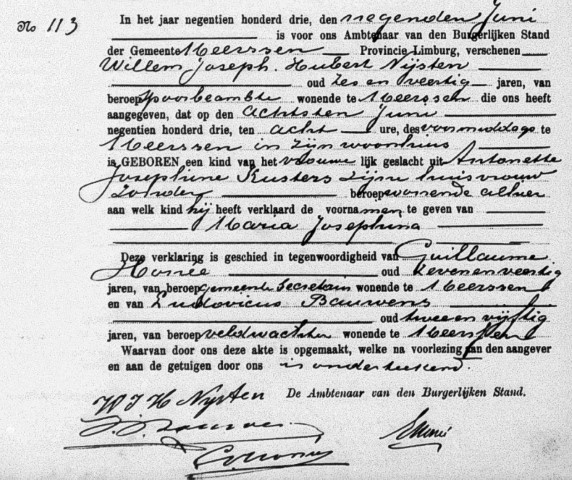 No 113
In het jaar negentien honderd drie, den negenden Juni
is voor ons Ambtenaar van den Burgerlijken Stand
der Gemeente Meerssen Provincie Limburg, verschenen
Willem Joseph Hubert Nijsten
oud zes en veertig jaren, van
beroep Spoorbeambte wonende te Meerssen die ons heeft
aangegeven, dat op den achtsten Juni
negentien honderd drie, ten acht ure, des voormiddags te
Meerssen in zijn woonhuis
is GEBOREN een kind van het vrouwelijk geslacht uit Antonette
Josephine Kusters zijne huisvrouw
zonder beroep wonende alhier
aan welk kind hij heeft verklaard de voornamen te geven van
Maria Josephina
Deze verklaring is geschied in tegenwoordigheid van Guillaume
Honée oud zevenenveertig
jaren, van beroep gemeente Secretaris wonende te Meerssen
en van Ludovicus Bauwens
oud tweeen vijftig
jaren, van beroep veldwachter wonende te Meerssen
Waarvan door ons deze akte is opgemaakt, welke na voorlezing aan den aangever
en aan de getuigen door ons is onderteekend.
W J H Nysten De Ambtenaar van den Burgerlijken Stand.